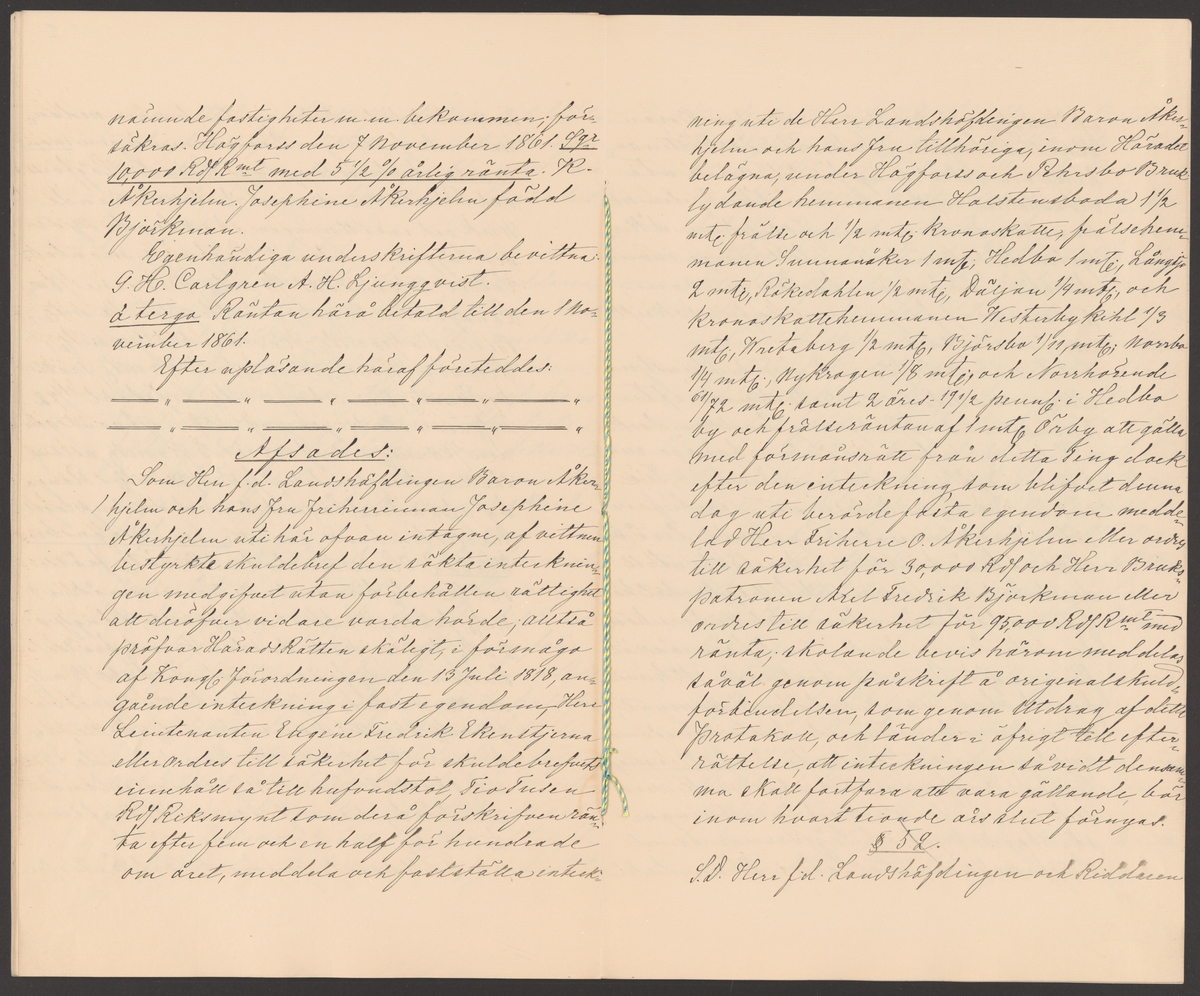 nämnde fastigheter m. m. bekommen, för-
säkras. Högforss den 7 November 1861. Sgr
10,000 Rdr Rmt med 5 1/2 % årlig ränta. K.
Åkerhjelm. Josephine Åkerhjelm född
Björkman.
Egenhändiga underskrifterna bevittna:
G. H. Carlgren A. H. Ljungqvist.
à tergo Räntan härå betald till den 1 No-
vember 1861.
Efter uplösande häraf företeddes:
— „ — „ — „ — „ — „ — „
— „ — „ — „ — „ — „ — „
Afsades:
Som Herr f.d. Landshöfdingen Baron Åker-
hjelm och hans Fru Friherrinnan Josephine
Åkerhjelm uti här ofvan intagne, af vittnen
bestyrkte skuldebref den sökta intecknin-
gen medgifvet utan förbehållen rättighet
att deröfver vidare varda hörde; alltså
pröfvar HäradsRätten skäligt, i förmågo
af Kongl Förordningen den 13 Juli 1818, an-
gående inteckning i fast egendom, Herr
Lieutenanten Eugène Fredrik Ekenstjerna
eller ordres till säkerhet för skuldebrefvets
innehåll så till hufvudstol, Tio Tusen
Rdr Riksmynt som derå förskrifven rän-
ta efter fem och en half för hundrade
om året, meddela och fastställa inteck-
ning uti de Herr Landshöfdingen Baron Åker-
hjelm och hans Fru tillhöriga, inom Häradet
belägna, under Högforss och Pehrsbo Bruk
lydande hemmanen Halstensboda 1 1/2
mtl. frälse och 1/2 mtl. kronoskatte, frälsehem-
manen Sunnanåker 1 mtl; Hedbo 1 mtl, Långsjö
2 mtl, Räkedahlen 1/2 mtl, Däljan 1/4 mtl, och
kronoskattehemmanen Westerbykihl 1/3
mtl, Wretaberg 1/2 mtl, Björsbo 1/11 mtl; Norrbo
1/4 mtl., Nykrogen 1/8 mtl, och Norrhörende
61/72 mtl. samt 2 öres 19 1/2 pennl. i Hedbo
by och frälseräntan af 1 mtl Örby att gälla
med förmånsrätt från detta Ting dock
efter den inteckning som blifvit denna
dag uti berörde fasta egendom medde-
lad Herr Friherre O. Åkerhjelm eller ordres
till säkerhet för 30,000 Rdr och Herr Bruks-
patronen Axel Fredrik Björkman eller
ordres till säkerhet för 95,000 Rdr Rmt med
ränta; skolande bevis härom meddelas
såväl genom påskrift å originalskuld-
förbindelsen, som genom Utdrag af detta
Protokoll, och länder i öfrigt till efter-
rättelse, att inteckningen såvidt densam-
ma skall fortfara att vara gällande, bör
inom hvart tionde års slut förnyas.
§ 52.
S.D. Herr f.d. Landshöfdingen och Riddaren